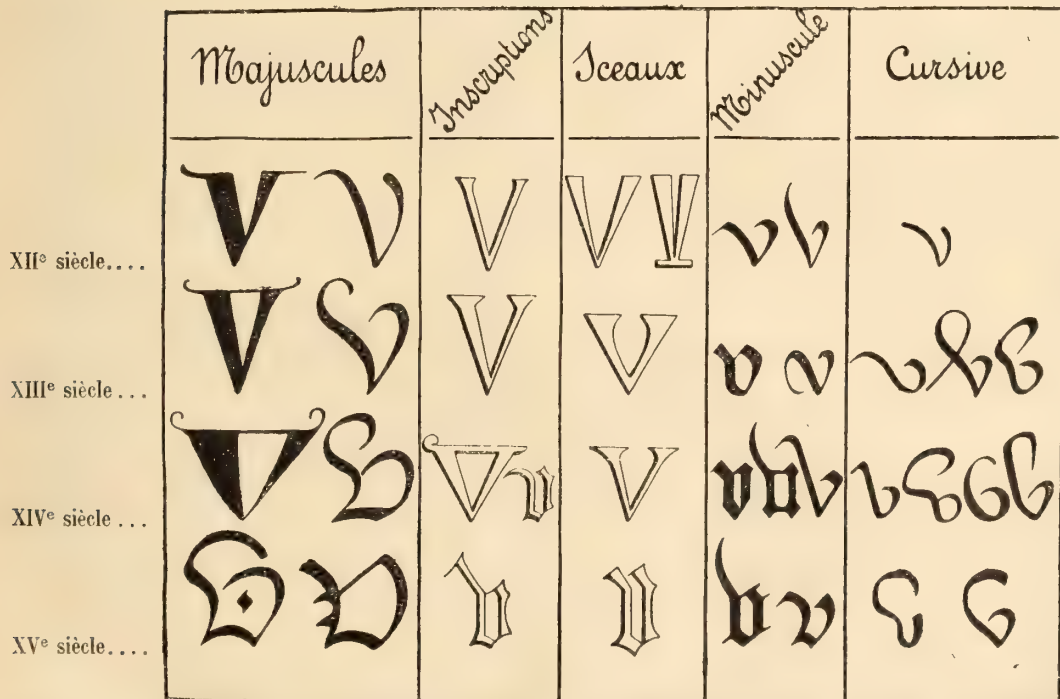 Majuscules Inscriptions Sceaux Minuscule Cursive
XIIe siècle.... V V V V V v v v
XIIIe siècle... V V V V v v v v v
XIVe siècle... V V V v V v v v v v v v
XVe siècle.... V V v v v v v v